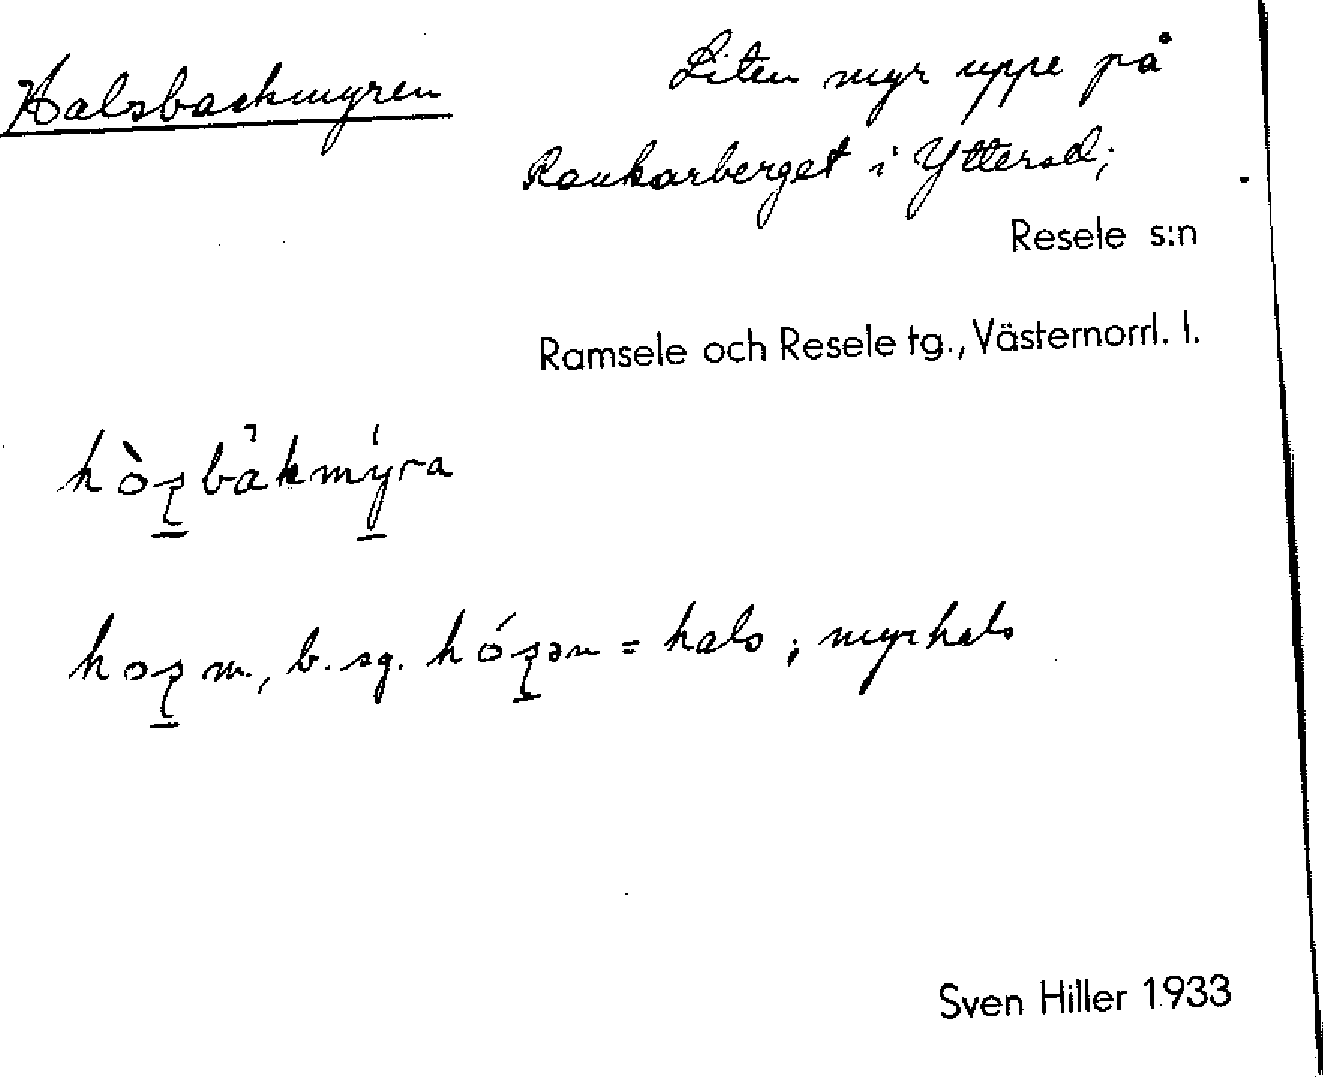 Halsbackmyren
Liten myr uppe på
Raukarberget i Yttersel;
Resele s:n
Ramsele och Resele tg., Västernorrl. l.
m., b. sg. = hals; myrhals
Sven Hiller 1933